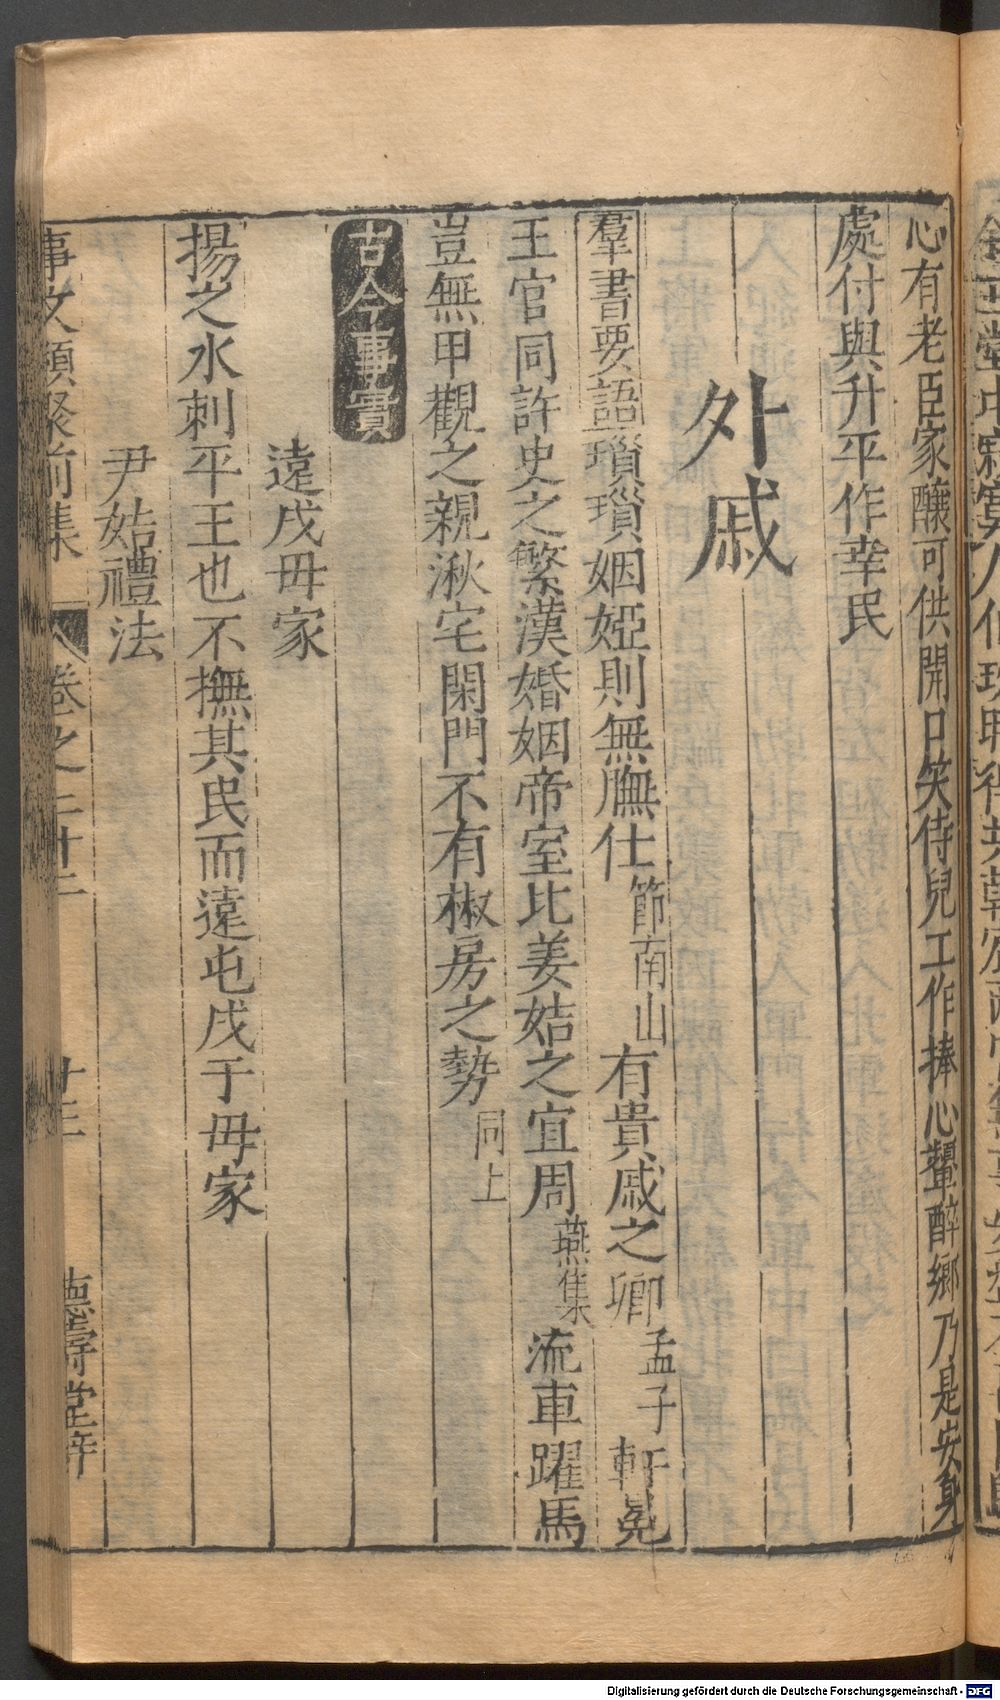 心有老臣家釀可供開口笑侍兒工作捧心顰醉鄉乃是安身
處付與升平作幸民
外戚
羣書要語瑣瑣姻婭則無膴仕節南山有貴戚之卿孟子軒冕
王官同許史之繁漢婚姻帝室比姜姞之宜周燕集流車躍馬
豈無甲觀之親湫宅閑門不有椒房之勢同上
古今事實
遠戍毋家
揚之水刺平王也不撫其民而遠屯戍于毋家
尹姞禮法
事文類聚前集 卷之二十二 廿三 德壽堂梓
Digitalisierung gefördert durch die Deutsche Forschungsgemeinschaft - DFG